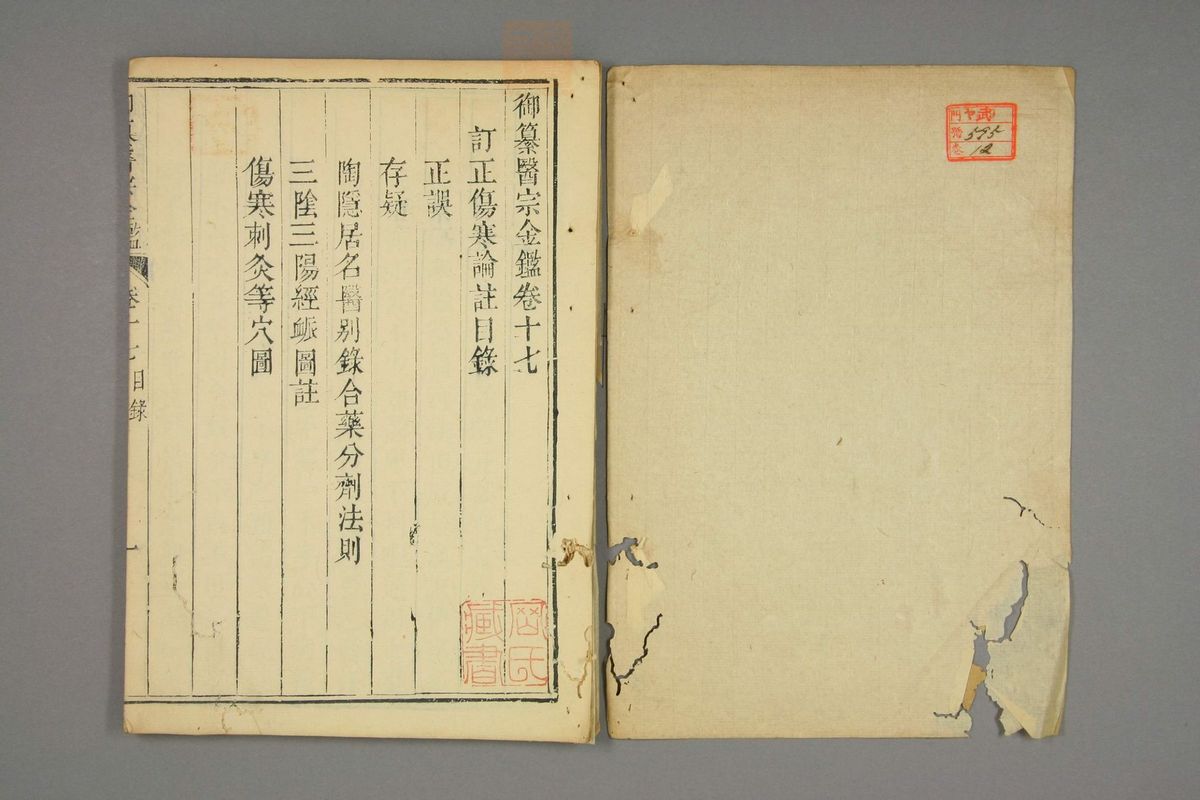 御纂醫宗金鑑卷十七
訂正傷寒論註目錄
正誤
存疑
陶隱居名醫別錄合藥分劑法則
三陰三陽經脈圖註
傷寒刺灸等穴圖
卷十七
目錄
一
藏書
門
號
595
12